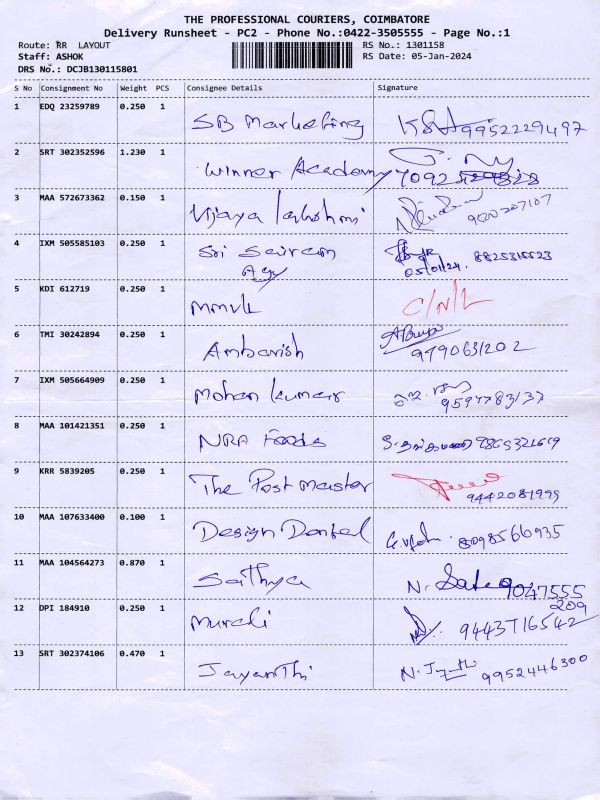 THE PROFESSIONAL COURIERS, COIMBATORE
Delivery Runsheet - PC2 - Phone No.:0422-3505555 - Page No.:1
Route: RR LAYOUT
RS No.: 1301158
Staff: ASHOK
RS Date: 05-Jan-2024
DRS No.: DCJB130115801
S No Consignment No Weight PCS Consignee Details Signature
1 EDQ 23259789 0.250 1
SB Marketing 9952229497
2 SRT 302352596 1.230 1
Winner Academy 70925
3 MAA 572673362 0.150 1
Vijaya lakshmi
4 IXM 505585103 0.250 1
Sri Sairam
Agy 05/01/24. 8825315523
5 KDI 612719 0.250 1
mmvk C/N/L
6 TMI 30242894 0.250 1
Ambarish 9790631202
7 IXM 505664909 0.250 1
Mohan kumar
8 MAA 101421351 0.250 1
NRA Foods 9865321619
9 KRR 5839205 0.250 1
The Post Master 9442081995
10 MAA 107633400 0.100 1
Design Dental 8098566935
11 MAA 104564273 0.870 1
Sathya N. 9047555
209
12 DPI 184910 0.250 1
Murali 9443716542
13 SRT 302374106 0.470 1
Jayanthi 9952446300